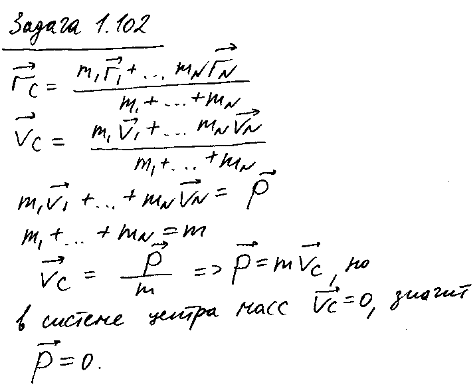 Задача 1.102
r⃗c = (m₁r⃗₁ + ... mNr⃗N) / (m₁ + ... + mN)
v⃗c = (m₁v⃗₁ + ... mNv⃗N) / (m₁ + ... + mN)
m₁v⃗₁ + ... + mNv⃗N = p⃗
m₁ + ... + mN = m
v⃗c = p⃗ / m => p⃗ = mv⃗c, но
в системе центра масс v⃗c = 0, значит
p⃗ = 0.